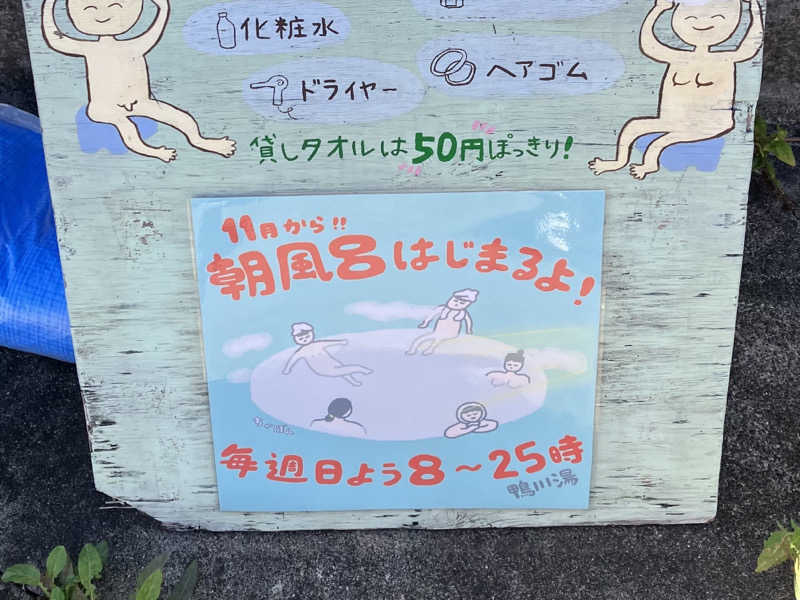 化粧水
ドライヤー
ヘアゴム
貸しタオルは50円ぽっきり!
11月から!!
朝風呂はじまるよ!
毎週日よう8〜25時
鴨川湯